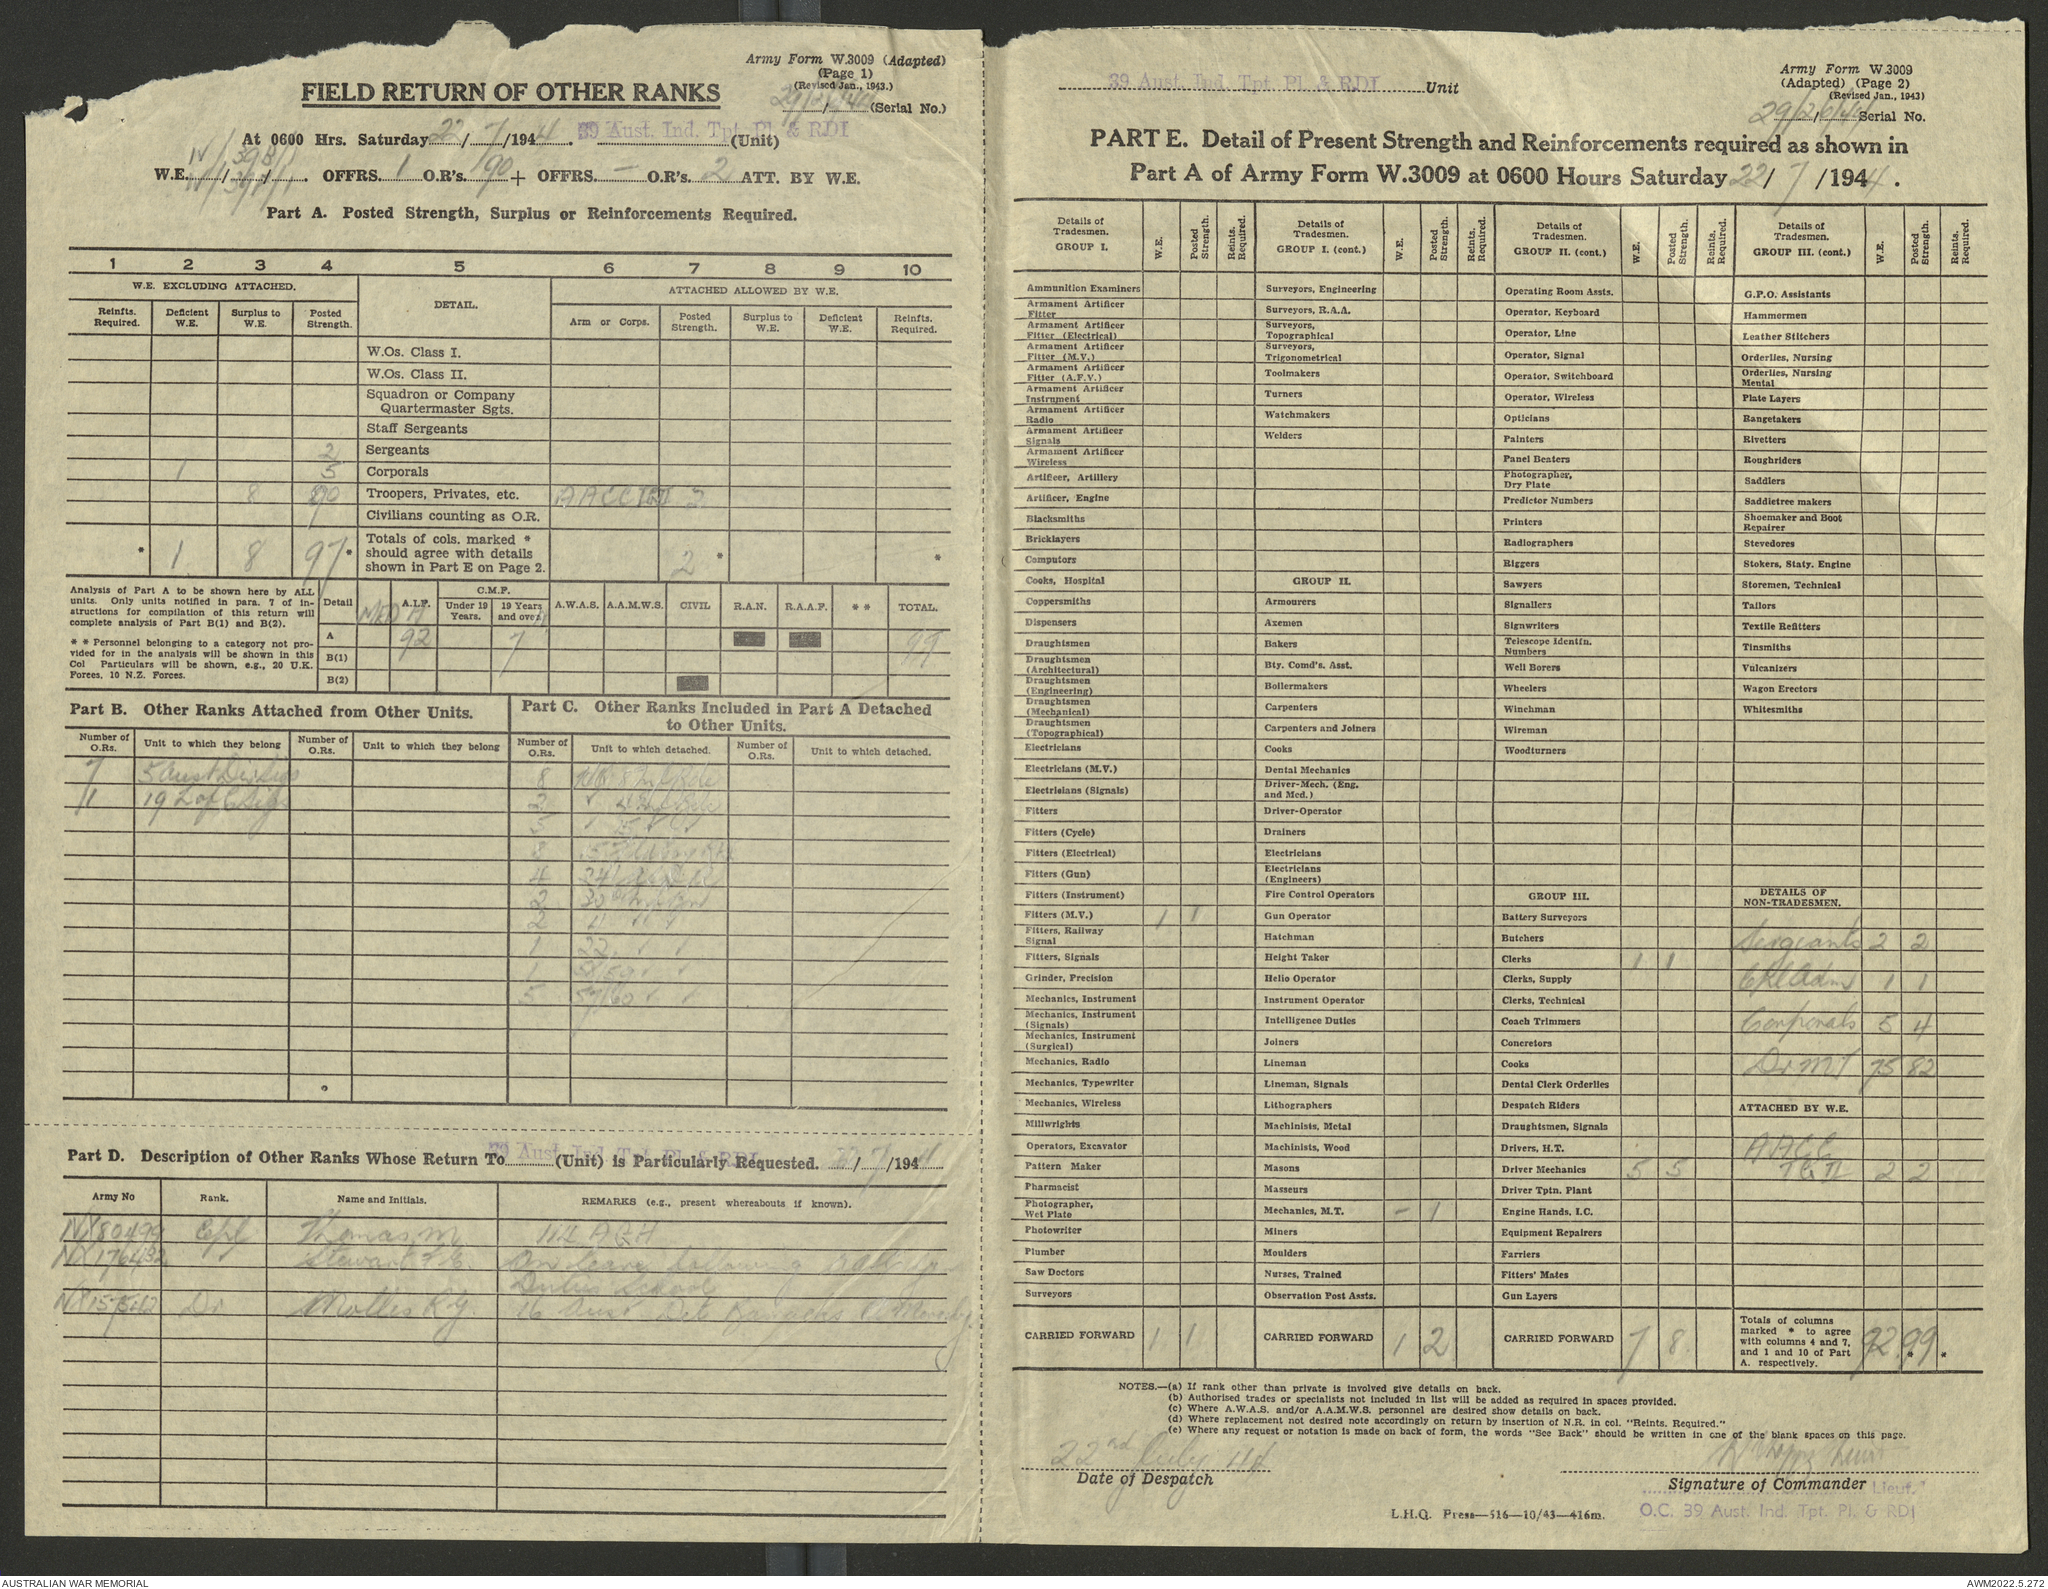 Army Form W.3009 (Adapted)
(Page 1)
(Revised Jan., 1943.)
FIELD RETURN OF OTHER RANKS
29/2/44 (Serial No.)
At 0600 Hrs. Saturday 22/7/1944. 39 Aust. Ind. Tpt. Pl. & RDI (Unit)
W.E. OFFRS. 1 O.R's. 90 + OFFRS. — O.R's. 2 ATT. BY W.E.
Part A. Posted Strength, Surplus or Reinforcements Required.
1 2 3 4 5 6 7 8 9 10
W.E. EXCLUDING ATTACHED. DETAIL. ATTACHED ALLOWED BY W.E.
Reinfts. Required. Deficient W.E. Surplus to W.E. Posted Strength. Arm or Corps. Posted Strength. Surplus to W.E. Deficient W.E. Reinfts. Required.
W.Os. Class I.
W.Os. Class II.
Squadron or Company Quartermaster Sgts.
Staff Sergeants
2 Sergeants
1 5 Corporals
8 90 Troopers, Privates, etc. AACC 2
Civilians counting as O.R.
* 1 8 97* Totals of cols. marked * should agree with details shown in Part E on Page 2. 2 * *
Analysis of Part A to be shown here by ALL units. Only units notified in para. 7 of instructions for compilation of this return will complete analysis of Part B(1) and B(2).
* * Personnel belonging to a category not provided for in the analysis will be shown in this Col Particulars will be shown, e.g., 20 U.K. Forces, 10 N.Z. Forces.
Detail MED A A.I.F. C.M.F. Under 19 Years. 19 Years and over. A.W.A.S. A.A.M.W.S. CIVIL R.A.N. R.A.A.F. * * TOTAL.
A 92 7 99
B(1)
B(2)
Part B. Other Ranks Attached from Other Units.
Number of O.Rs. Unit to which they belong Number of O.Rs. Unit to which they belong
7 5 Aust Div Sigs
1 19 L of C Sigs
Part C. Other Ranks Included in Part A Detached to Other Units.
Number of O.Rs. Unit to which detached. Number of O.Rs. Unit to which detached.
8
2
5
8
4 24
2 30
2
1 22
1
5 57/60
Part D. Description of Other Ranks Whose Return To 39 Aust. Ind. Tpt. Pl. & RDI (Unit) is Particularly Requested. 22/7/1944
Army No Rank. Name and Initials. REMARKS (e.g., present whereabouts if known).
NX80499 Cpl Thomas M. 112 AGH
NX176432 Stewart On leave following
School
Dr Mollis R G. 16 Aust
Army Form W.3009
(Adapted) (Page 2)
(Revised Jan., 1943)
39 Aust. Ind. Tpt. Pl. & RDI Unit
Serial No.
PART E. Detail of Present Strength and Reinforcements required as shown in
Part A of Army Form W.3009 at 0600 Hours Saturday 22/7/1944.
Details of Tradesmen. GROUP I. W.E. Posted Strength. Reints. Required.
Ammunition Examiners
Armament Artificer Fitter
Armament Artificer Fitter (Electrical)
Armament Artificer Fitter (M.V.)
Armament Artificer Fitter (A.F.V.)
Armament Artificer Instrument
Armament Artificer Radio
Armament Artificer Signals
Armament Artificer Wireless
Artificer, Artillery
Artificer, Engine
Blacksmiths
Bricklayers
Computors
Cooks, Hospital
Coppersmiths
Dispensers
Draughtsmen
Draughtsmen (Architectural)
Draughtsmen (Engineering)
Draughtsmen (Mechanical)
Draughtsmen (Topographical)
Electricians
Electricians (M.V.)
Electricians (Signals)
Fitters
Fitters (Cycle)
Fitters (Electrical)
Fitters (Gun)
Fitters (Instrument)
Fitters (M.V.) 1 1
Fitters, Railway Signal
Fitters, Signals
Grinder, Precision
Mechanics, Instrument
Mechanics, Instrument (Signals)
Mechanics, Instrument (Surgical)
Mechanics, Radio
Mechanics, Typewriter
Mechanics, Wireless
Millwrights
Operators, Excavator
Pattern Maker
Pharmacist
Photographer, Wet Plate
Photowriter
Plumber
Saw Doctors
Surveyors
CARRIED FORWARD 1 1
Details of Tradesmen. GROUP I. (cont.) W.E. Posted Strength. Reints. Required.
Surveyors, Engineering
Surveyors, R.A.A.
Surveyors, Topographical
Surveyors, Trigonometrical
Toolmakers
Turners
Watchmakers
Welders
GROUP II.
Armourers
Axemen
Bakers
Bty. Comd's. Asst.
Boilermakers
Carpenters
Carpenters and Joiners
Cooks
Dental Mechanics
Driver-Mech. (Eng. and Med.)
Driver-Operator
Drainers
Electricians
Electricians (Engineers)
Fire Control Operators
Gun Operator
Hatchman
Height Taker
Helio Operator
Instrument Operator
Intelligence Duties
Joiners
Lineman
Lineman, Signals
Lithographers
Machinists, Metal
Machinists, Wood
Masons
Masseurs
Mechanics, M.T. – 1
Miners
Moulders
Nurses, Trained
Observation Post Assts.
CARRIED FORWARD 1 2
Details of Tradesmen. GROUP II. (cont.) W.E. Posted Strength. Reints. Required.
Operating Room Assts.
Operator, Keyboard
Operator, Line
Operator, Signal
Operator, Switchboard
Operator, Wireless
Opticians
Painters
Panel Beaters
Photographer, Dry Plate
Predictor Numbers
Printers
Radiographers
Riggers
Sawyers
Signallers
Signwriters
Telescope Identfn. Numbers
Well Borers
Wheelers
Winchman
Wireman
Woodturners
GROUP III.
Battery Surveyors
Butchers
Clerks 1 1
Clerks, Supply
Clerks, Technical
Coach Trimmers
Concretors
Cooks
Dental Clerk Orderlies
Despatch Riders
Draughtsmen, Signals
Drivers, H.T.
Driver Mechanics 5 5
Driver Tptn. Plant
Engine Hands, I.C.
Equipment Repairers
Farriers
Fitters' Mates
Gun Layers
CARRIED FORWARD 7 8
Details of Tradesmen. GROUP III. (cont.) W.E. Posted Strength. Reints. Required.
G.P.O. Assistants
Hammermen
Leather Stitchers
Orderlies, Nursing
Orderlies, Nursing Mental
Plate Layers
Rangetakers
Rivetters
Roughriders
Saddlers
Saddletree makers
Shoemaker and Boot Repairer
Stevedores
Stokers, Staty. Engine
Storemen, Technical
Tailors
Textile Refitters
Tinsmiths
Vulcanizers
Wagon Erectors
Whitesmiths
DETAILS OF NON-TRADESMEN.
Sergeants 2 2
Cpl Adms 1 1
Corporals 5 4
Dr MT 75 82
ATTACHED BY W.E.
AACC
TG II 2 2
Totals of columns marked * to agree with columns 4 and 7, and 1 and 10 of Part A. respectively. 92* 99* *
NOTES.—(a) If rank other than private is involved give details on back.
(b) Authorised trades or specialists not included in list will be added as required in spaces provided.
(c) Where A.W.A.S. and/or A.A.M.W.S. personnel are desired show details on back.
(d) Where replacement not desired note accordingly on return by insertion of N.R. in col. "Reints. Required."
(e) Where any request or notation is made on back of form, the words "See Back" should be written in one of the blank spaces on this page.
22nd July 44
Date of Despatch
Signature of Commander Lieut.
O.C. 39 Aust. Ind. Tpt. Pl. & RDI
L.H.Q. Press—516—10/43—416m.
AUSTRALIAN WAR MEMORIAL
AWM2022.5.272